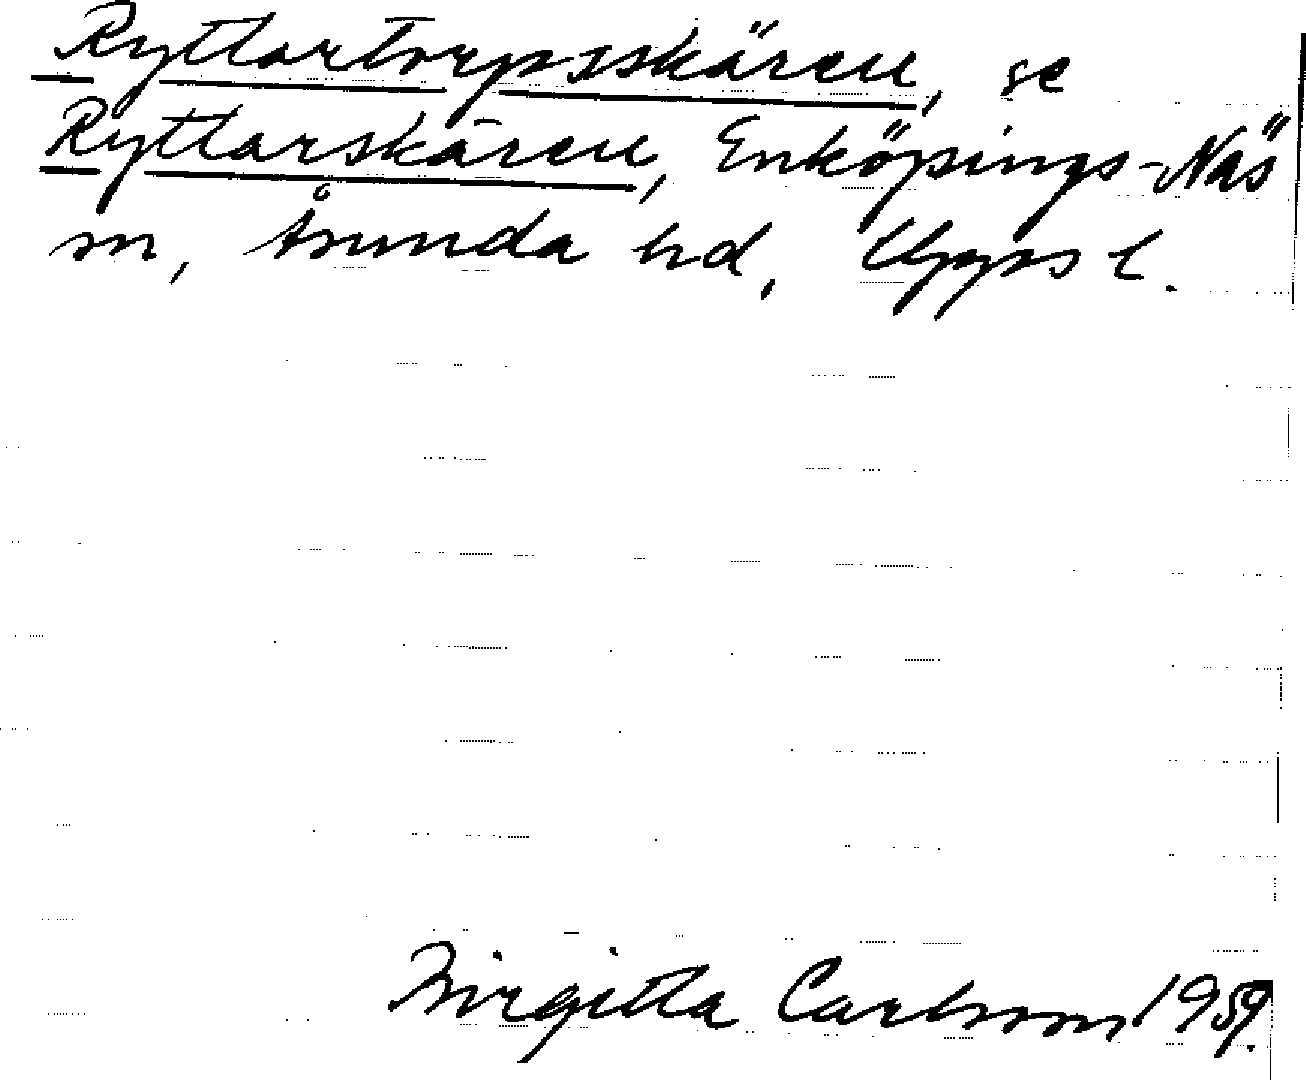 Ryttartorpsskären, se
Ryttarskären, Enköpings-Näs
sn, Åsunda hd, Upps l.
Birgitta Carlsson 1959.